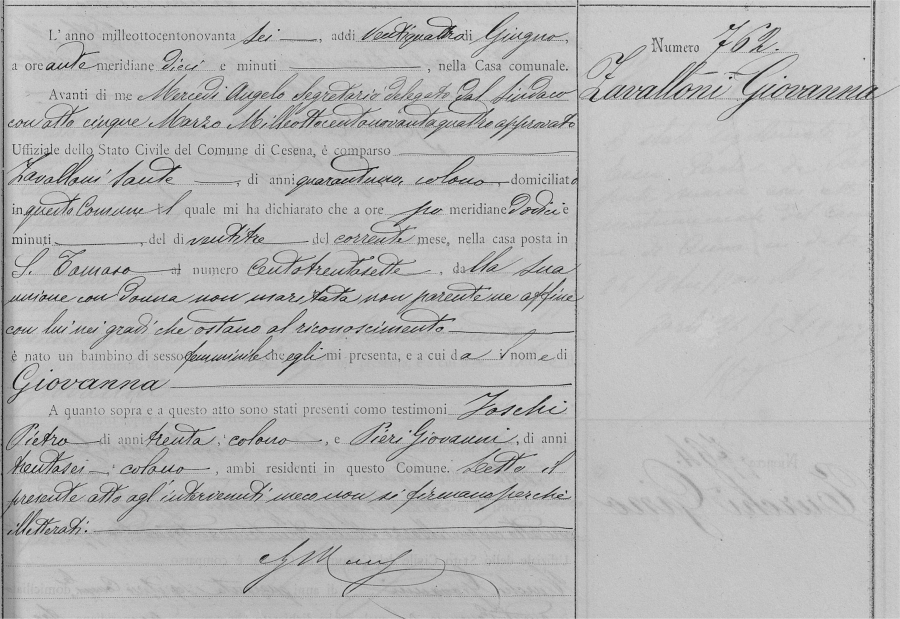 L'anno milleottocentonovanta sei, addì ventiquattro di Giugno,
a ore ante meridiane dieci e minuti , nella Casa comunale.
Avanti di me Mercedi Angelo Segretario delegato dal Sindaco
con atto cinque Marzo Milleottocentonovantaquattro approvato
Uffiziale dello Stato Civile del Comune di Cesena, è comparso
Zavalloni Sante , di anni quarantuno, colono domiciliato
in questo Comune il quale mi ha dichiarato che a ore po meridiane dodici e
minuti , del dì ventitre del corrente mese, nella casa posta in
S. Tomaso al numero centotrentasette, dalla sua
unione con donna non maritata non parente ne affine
con lui nei gradi che ostano al riconoscimento
è nato un bambino di sesso femminile che egli mi presenta, e a cui da il nome di
Giovanna
A quanto sopra e a questo atto sono stati presenti come testimoni Foschi
Pietro di anni trenta, colono , e Pieri Giovanni, di anni
trentasei, colono , ambi residenti in questo Comune. Letto il
presente atto agl'intervenuti meco non si firmano perchè
illetterati.
Numero 762.
Zavalloni Giovanna